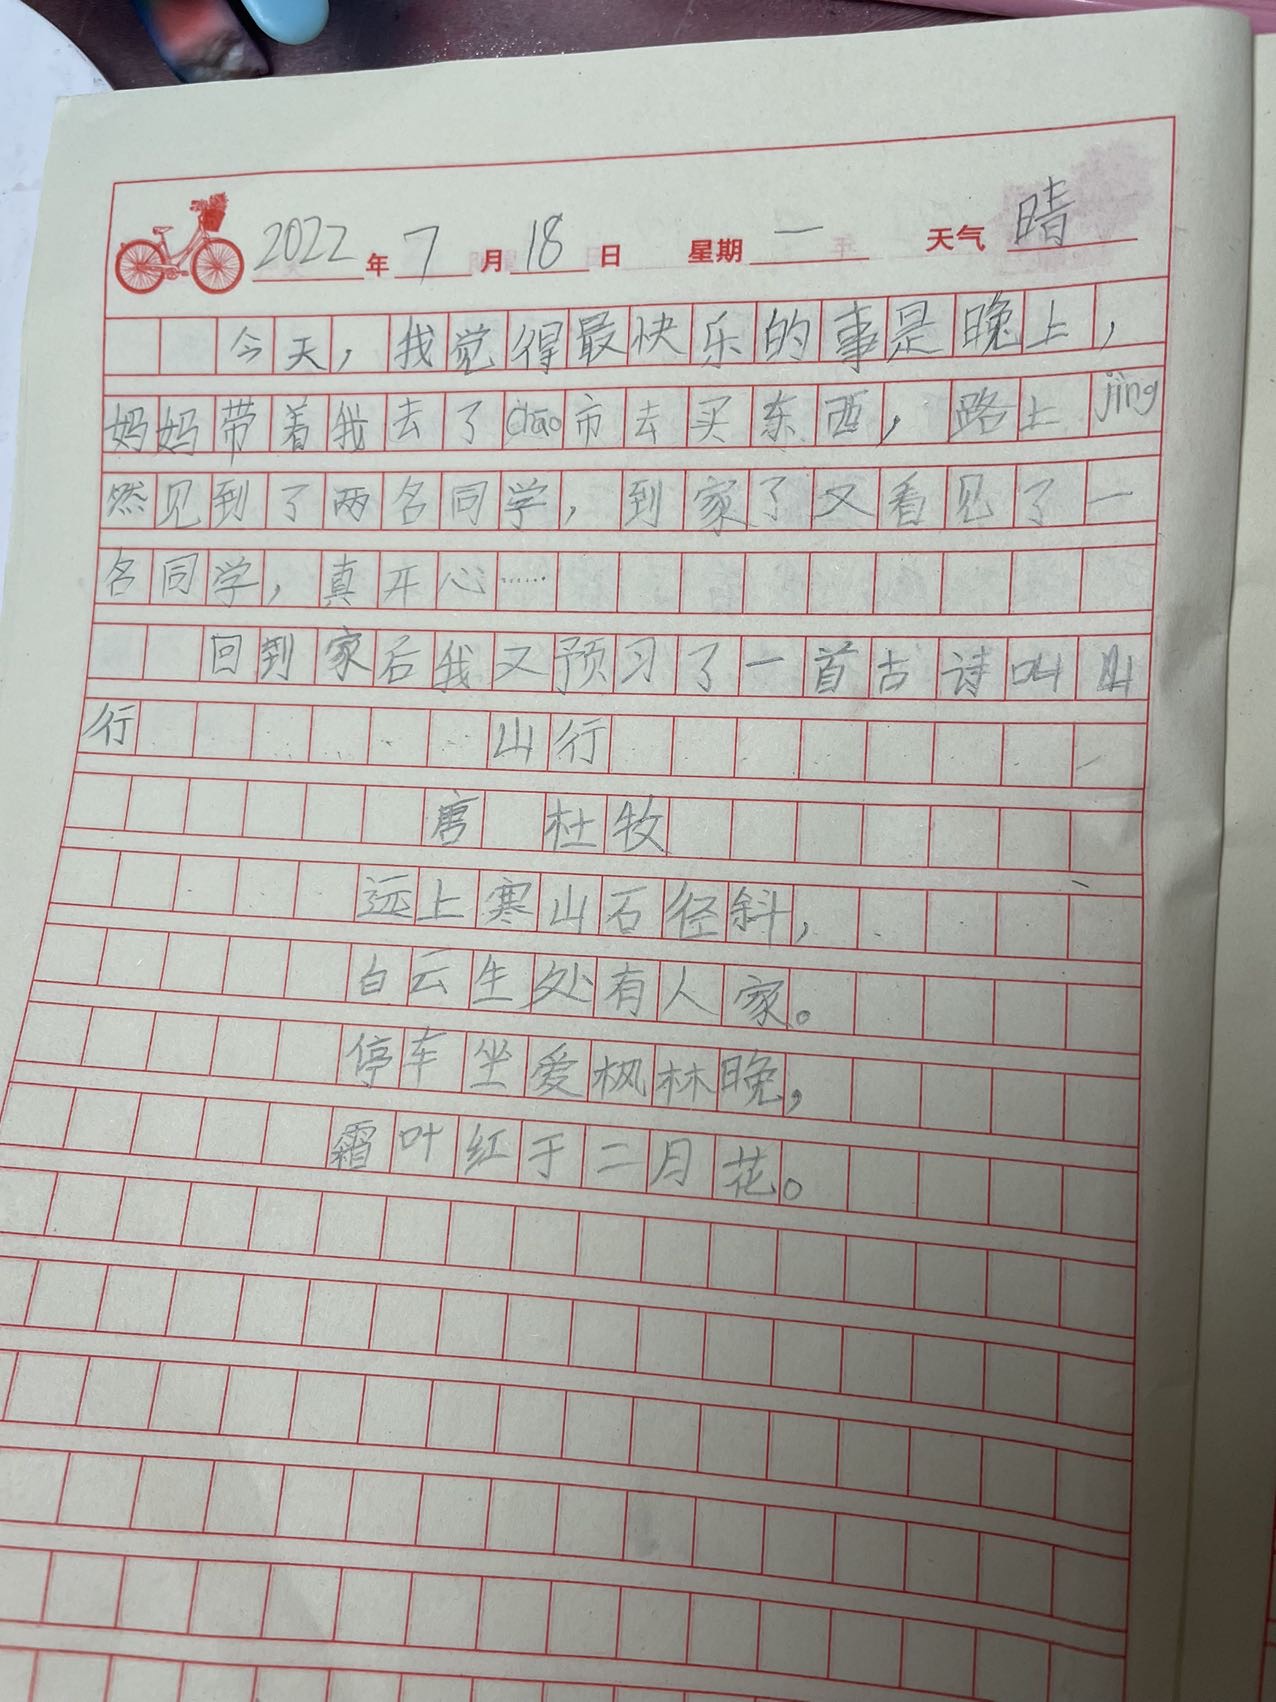 2022年7月18日 星期一 天气晴
今天，我觉得最快乐的事是晚上，
妈妈带着我去了chāo市去买东西，路上jìng
然见到了两名同学，到家了又看见了一
名同学，真开心……
回到家后我又预习了一首古诗叫山
行 山行
唐 杜牧
远上寒山石径斜，
白云生处有人家。
停车坐爱枫林晚，
霜叶红于二月花。